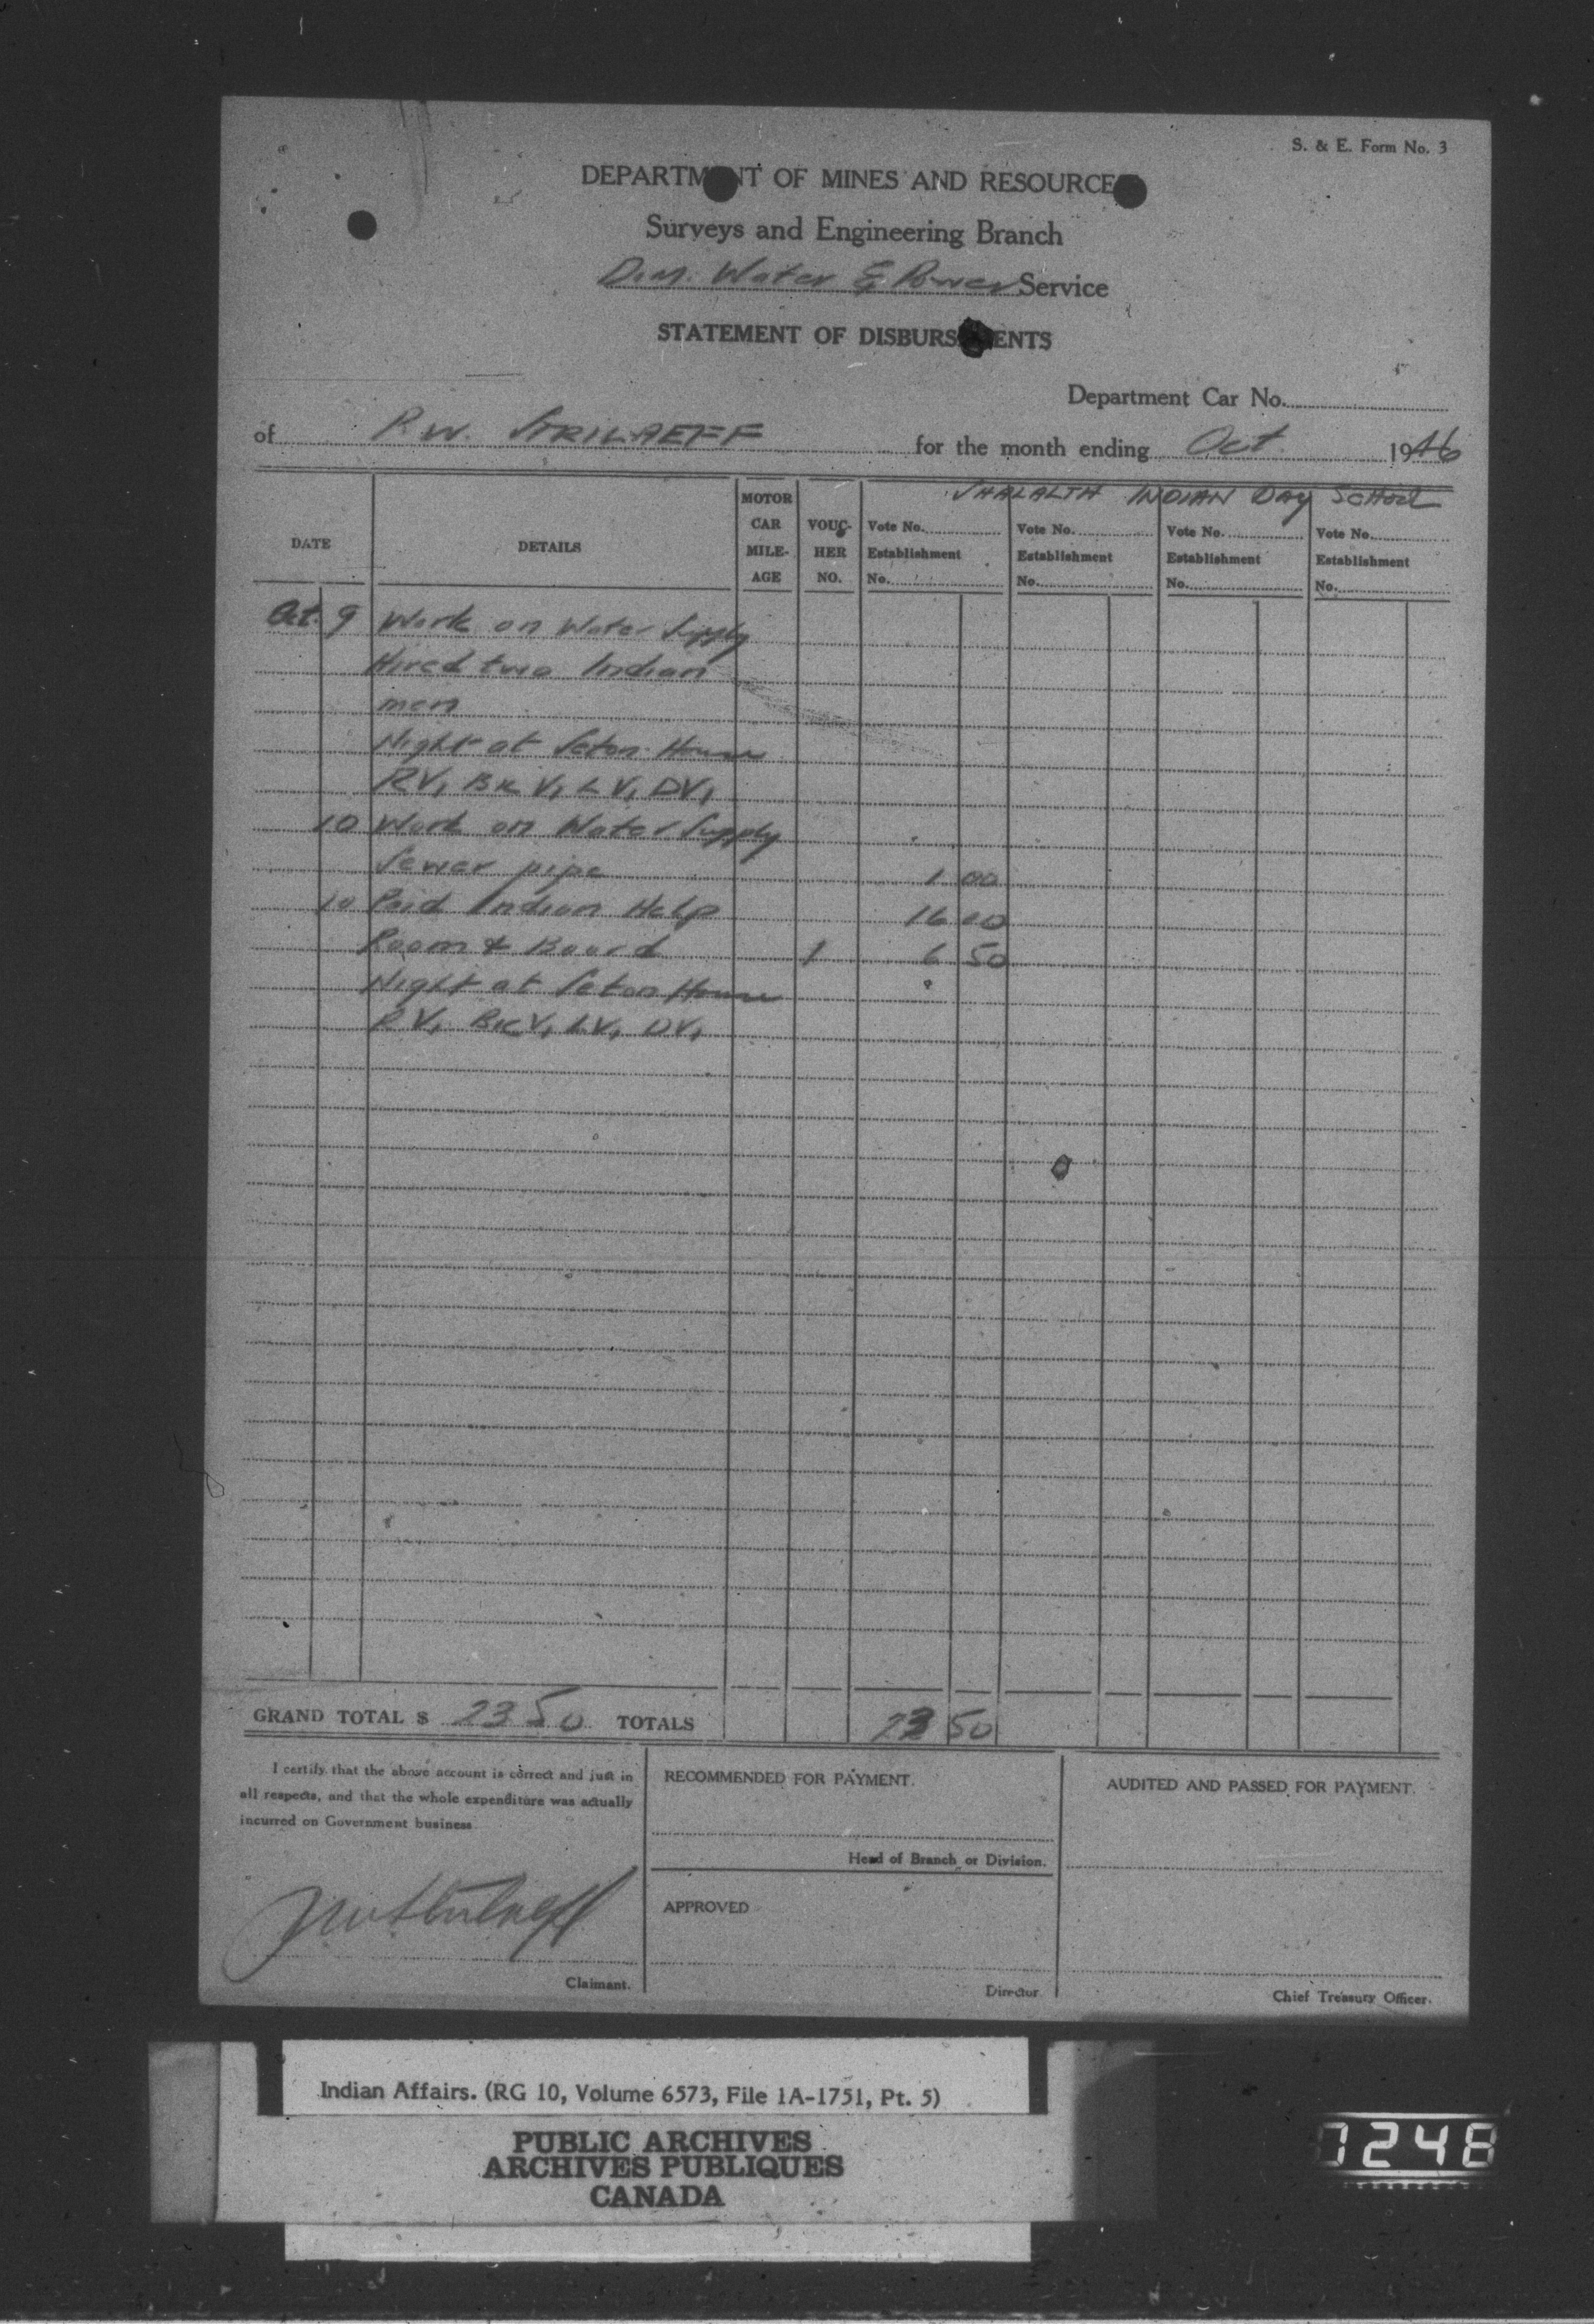 S. & E. Form No. 3
DEPARTMENT OF MINES AND RESOURCES
Surveys and Engineering Branch
Dom. Water & Power Service
STATEMENT OF DISBURSEMENTS
Department Car No.
of P.W. STRILAEFF for the month ending Oct. 1946
SHALALTH INDIAN DAY SCHOOL
DATE DETAILS MOTOR CAR MILEAGE VOUCHER NO. Vote No. Establishment No. Vote No. Establishment No. Vote No. Establishment No. Vote No. Establishment No.
Oct. 9 Work on Water Supply
Hired two Indian
men
Night at Seton House
RV, BK V, LV, DV,
10 Work on Water Supply
Sewer pipe 1 00
10 Paid Indian Help 16 00
Room & Board 1 6 50
Night at Seton House
RV, BKV, LV, DV,
GRAND TOTAL $ 23 50 TOTALS 23 50
I certify that the above account is correct and just in
all respects, and that the whole expenditure was actually
incurred on Government business
Claimant.
RECOMMENDED FOR PAYMENT.
Head of Branch or Division.
APPROVED
Director
AUDITED AND PASSED FOR PAYMENT.
Chief Treasury Officer.
Indian Affairs. (RG 10, Volume 6573, File 1A-1751, Pt. 5)
PUBLIC ARCHIVES
ARCHIVES PUBLIQUES
CANADA
7248